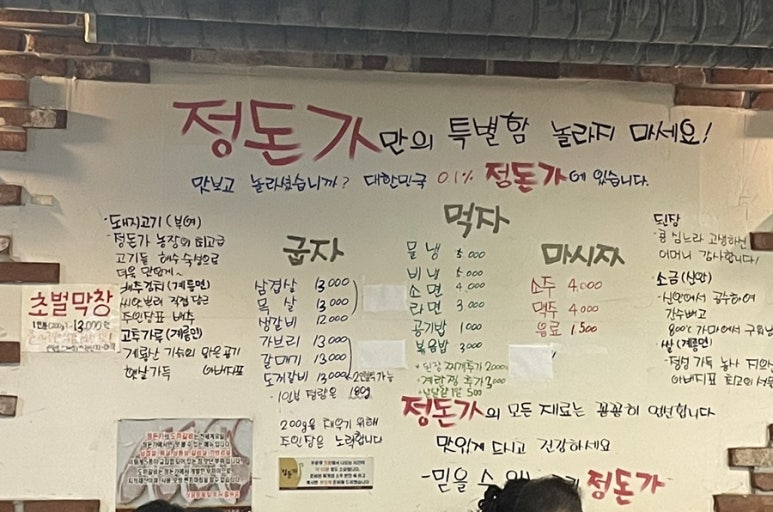 정돈가만의 특별함 놀라지 마세요!
맛보고 놀라셨습니까? 대한민국 0.1% 정돈가에 있습니다.
돼지고기 (부여)
정돈가 농장의 최고급
고기를 해수 숙성으로
더욱 맛있게~
배추김치 (계룡면)
씨앗부터 직접 담근
주인담표 배추
고투가루 (계룡면)
계룡산 기슭의 맑은 공기
햇살가득 아버지표
초벌막창
1인분(200g) - 13,000원
굽자
삼겹살 13,000
목살 13,000
생갈비 12,000
가브리 13,000
갈매기 13,000
도끼갈비 13,000 2인분
1인분 중량은 180g
200g을 채우기 위해
주인담은 노력합니다
먹자
물냉 5,000
비냉 5,000
소면 4,000
라면 3,000
공기밥 1000
볶음밥 3000
된장찌개추가 2000
계란찜 추가 3000
500
마시자
소주 4,000
맥주 4,000
음료 1,500
된장
콩 심느라 고생하신
어머니 감사합니다!
소금 (신안)
신안에서 공수하여
간수빼고
800℃ 가마에서 구워낸
쌀 (계룡면)
정성 가득 농사 지으신
아버지표 최고의
정돈가의 모든 재료는 꼼꼼히 엄선합니다
맛있게 드시고 건강하세요
-믿을 수 정돈가-